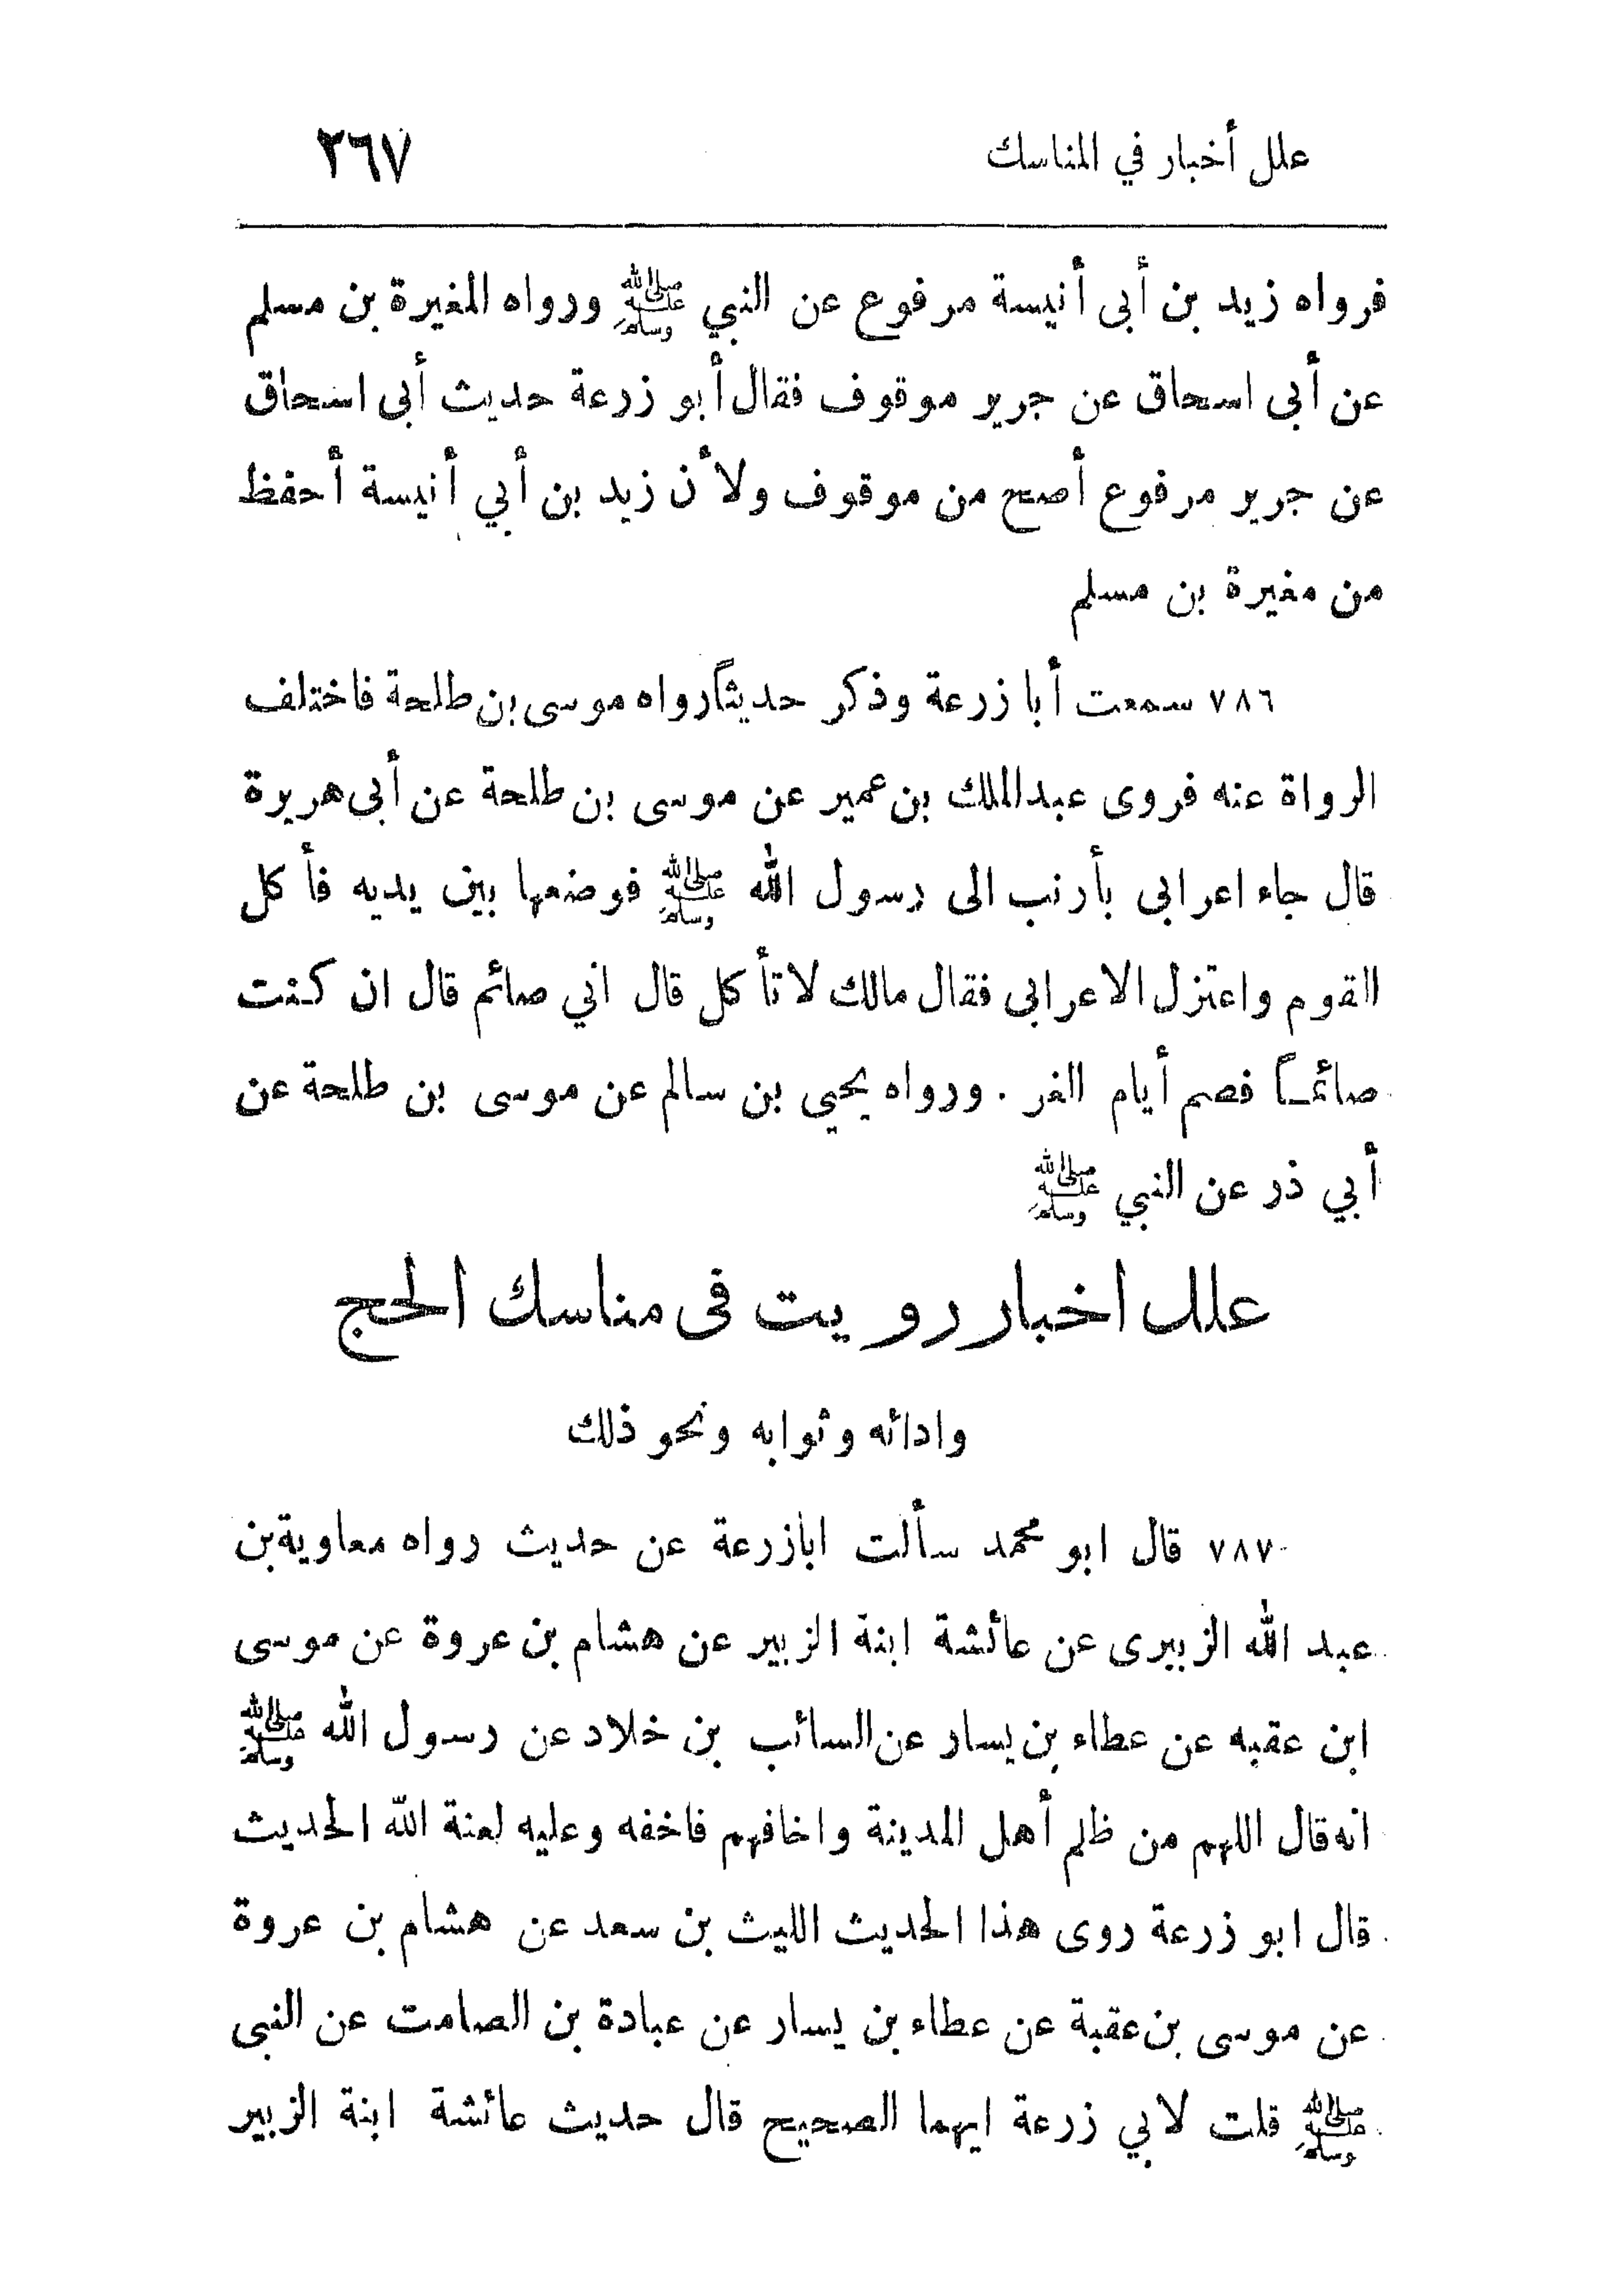 علل أخبار في المناسك ٢٦٧
فرواه زيد بن أبى أنيسة مرفوع عن النبي ﷺ ورواه المغيرة بن مسلم
عن أبى اسحاق عن جرير موقوف فقال أبو زرعة حديث أبى اسحاق
عن جرير مرفوع أصح من موقوف ولأن زيد بن أبي أنيسة أحفظ
من مغيرة بن مسلم
٧٨٦ سمعت أبا زرعة وذكر حديثاً رواه موسى بن طلحة فاختلف
الرواة عنه فروى عبد الملك بن عمير عن موسى بن طلحة عن أبى هريرة
قال جاء اعرابى بأرنب الى رسول الله ﷺ فوضعها بين يديه فأكل
القوم واعتزل الاعرابى فقال مالك لا تأكل قال اني صائم قال ان كنت
صائمـاً فصم أيام الغر . ورواه يحيى بن سالم عن موسى بن طلحة عن
أبي ذر عن النبي ﷺ
علل اخبار رويت فى مناسك الحج
وادائه وثوابه ونحو ذلك
٧٨٧ قال ابو محمد سألت ابا زرعة عن حديث رواه معاوية بن
عبد الله الزبيرى عن عائشة ابنة الزبير عن هشام بن عروة عن موسى
ابن عقبه عن عطاء بن يسار عن السائب بن خلاد عن رسول الله ﷺ
انه قال اللهم من ظلم أهل المدينة واخافهم فاخفه وعليه لعنة الله الحديث
قال ابو زرعة روى هذا الحديث الليث بن سعد عن هشام بن عروة
عن موسى بن عقبة عن عطاء بن يسار عن عبادة بن الصامت عن النبى
ﷺ قلت لابي زرعة ايهما الصحيح قال حديث عائشة ابنة الزبير